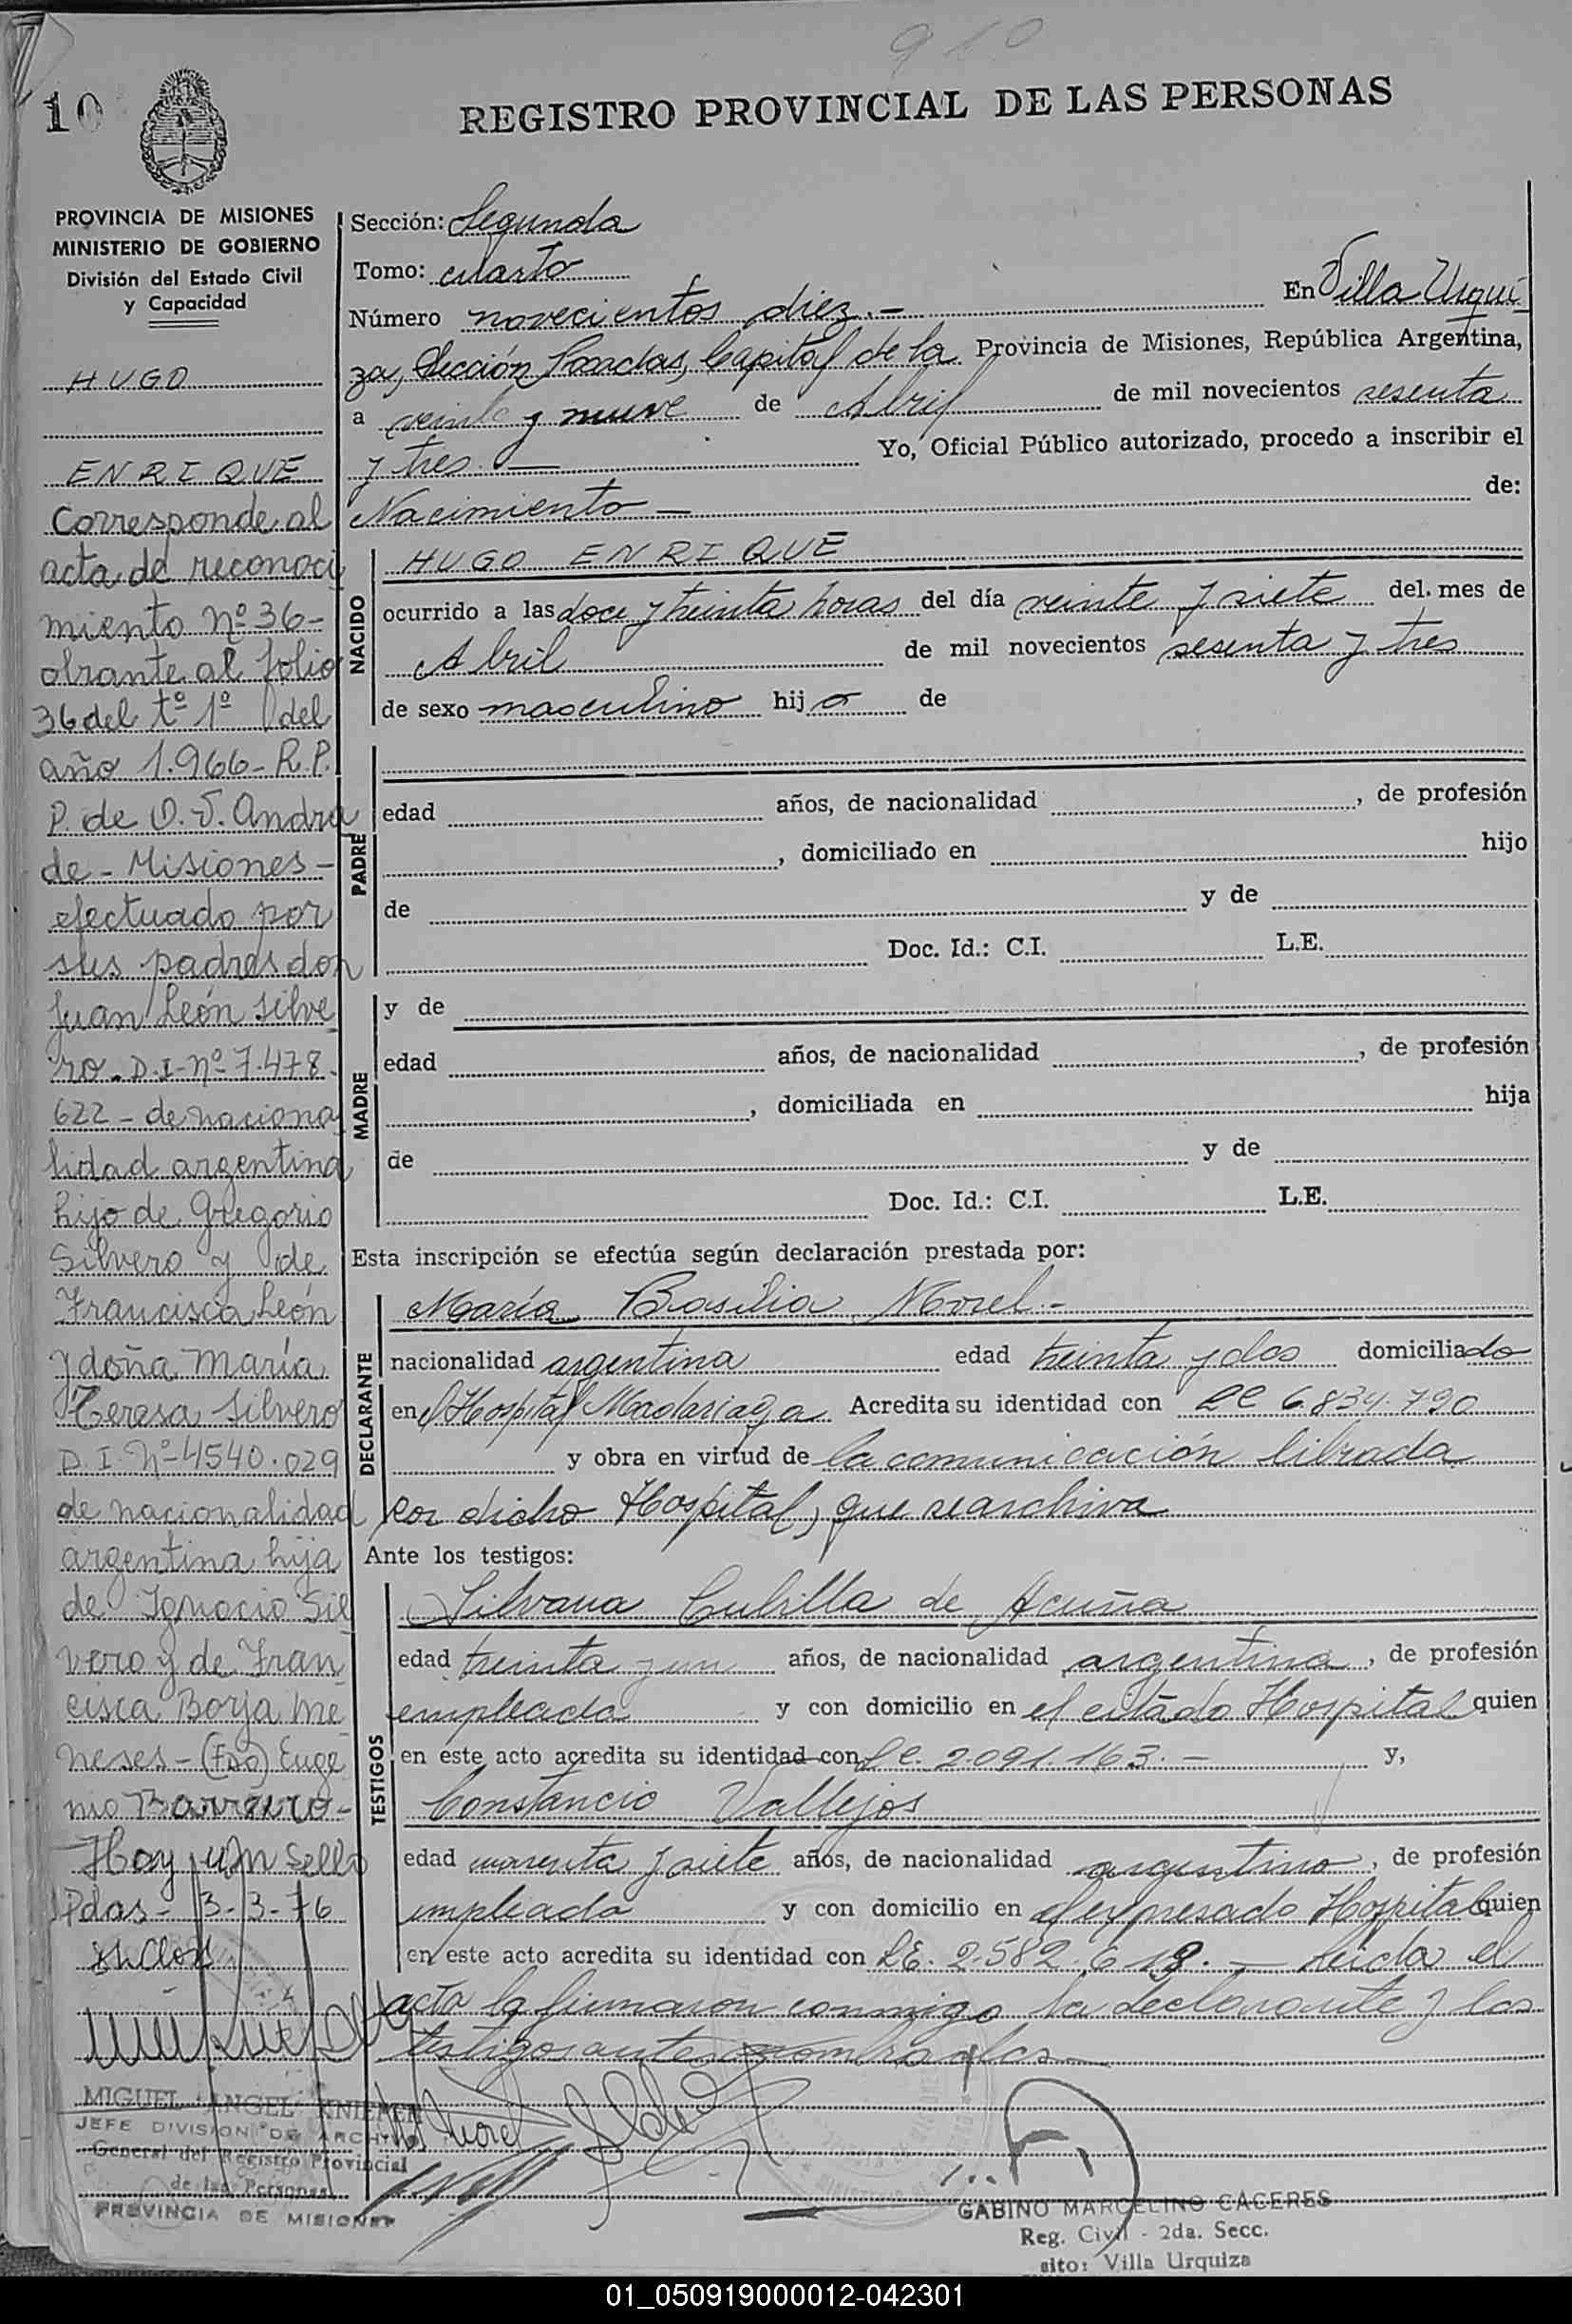 910
10
REGISTRO PROVINCIAL DE LAS PERSONAS
PROVINCIA DE MISIONES
MINISTERIO DE GOBIERNO
División del Estado Civil
y Capacidad
HUGO
ENRIQUE
Corresponde al
acta de reconoci
miento nº 36-
obrante al folio
36 del tº 1º del
año 1.966- R.P.
P. de O.V. Andra
de - Misiones -
efectuado por
sus padres don
Juan León Silve
ro. D.I-nº 7.478.
622 - de naciona
lidad argentina
hijo de Gregorio
Silvero y de
Francisca León
y doña María
Teresa Silvero
D.I. Nº 4540.029
de nacionalidad
argentina hija
de Ignacio Sil
vero y de Fran
cisca Borja Me
neses - (Fdo) Euge
nio Barreiro-
Hay un sello
Pdas- 3-3-76
MIGUEL ANGEL KNIEPER
JEFE DIVISION DE ARCHIVO
General del Registro Provincial
de las Personas
PROVINCIA DE MISIONES
Sección: Segunda
Tomo: cuarto
Número novecientos diez.- En Villa Urqui
za, Sección Posadas, Capital de la Provincia de Misiones, República Argentina,
a veinte y nueve de Abril de mil novecientos sesenta
y tres.— Yo, Oficial Público autorizado, procedo a inscribir el
Nacimiento — de:
NACIDO
HUGO ENRIQUE
ocurrido a las doce y treinta horas del día veinte y siete del mes de
Abril de mil novecientos sesenta y tres
de sexo masculino hijo de
PADRE
edad años, de nacionalidad , de profesión
, domiciliado en hijo
de y de
Doc. Id.: C.I. L.E.
MADRE
y de
edad años, de nacionalidad , de profesión
, domiciliada en hija
de y de
Doc. Id.: C.I. L.E.
Esta inscripción se efectúa según declaración prestada por:
DECLARANTE
María Basilia Morel.-
nacionalidad argentina edad treinta y dos domiciliado
en el Hospital Madariaga Acredita su identidad con LC 6.834.790
y obra en virtud de la comunicación librada
por dicho Hospital, que se archiva
Ante los testigos:
TESTIGOS
Silvana Cubilla de Acuña
edad treinta y un años, de nacionalidad argentina, de profesión
empleada y con domicilio en el citado Hospital quien
en este acto acredita su identidad con L.C. 2.091.163.- y,
Constancio Vallejos
edad cuarenta y siete años, de nacionalidad argentino, de profesión
empleado y con domicilio en el expresado Hospital quien
en este acto acredita su identidad con L.E. 2.582.618.— Leída el
acta la firmaron conmigo la declarante y los
testigos antes nombrados
M Morel
GABINO MARCELINO CACERES
Reg. Civil - 2da. Secc.
sito: Villa Urquiza
01_050919000012-042301